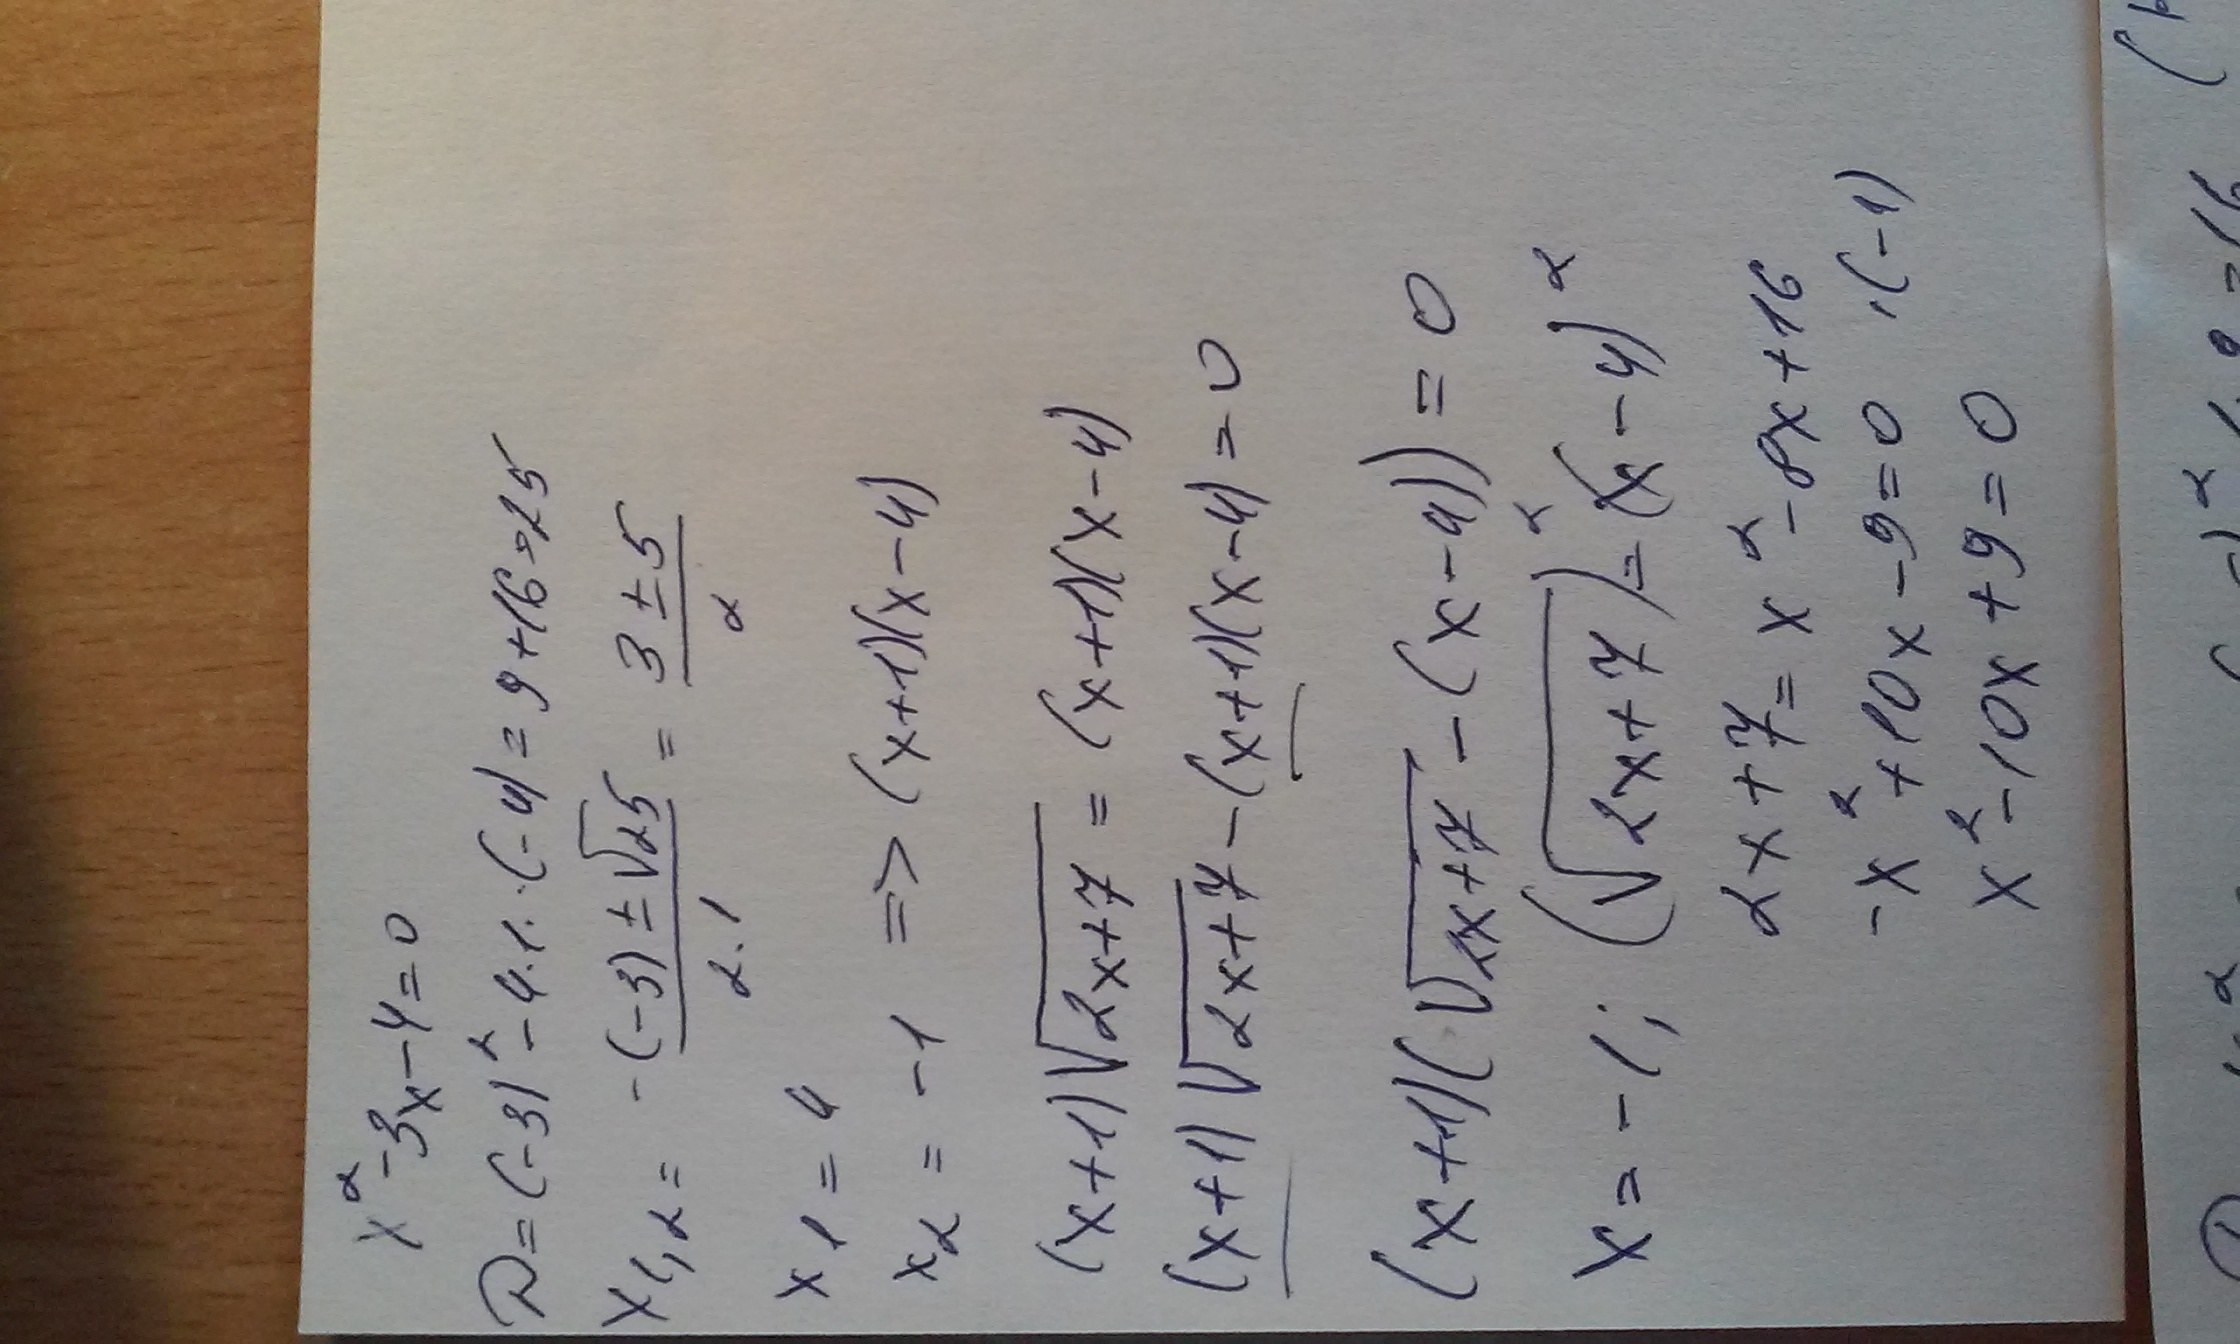 x²-3x-4=0
D=(-3)²-4·1·(-4)=9+16=25
x1,2= -(-3)±√25/2·1 = 3±5/2
x1=4
x2=-1 => (x+1)(x-4)
(x+1)√2x+7=(x+1)(x-4)
(x+1)√2x+7-(x+1)(x-4)=0
(x+1)(√2x+7-(x-4))=0
x=-1; (√2x+7)²=(x-4)²
2x+7=x²-8x+16
-x²+10x-9=0 ·(-1)
x²-10x+9=0